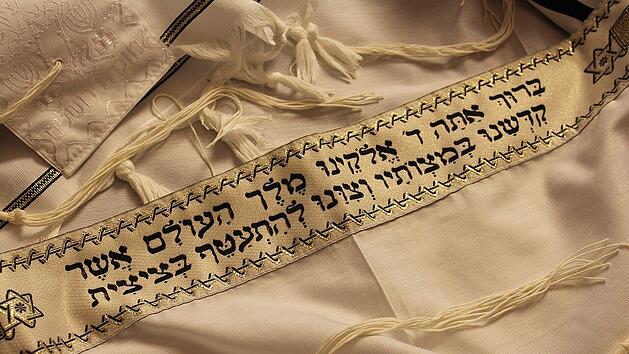 בָּרוּךְ אַתָּה ד׳ אֱלֹקֵינוּ מֶלֶךְ הָעוֹלָם אֲשֶׁר
קִדְּשָׁנוּ בְּמִצְוֹתָיו וְצִוָּנוּ לְהִתְעַטֵּף בְּצִיצִית